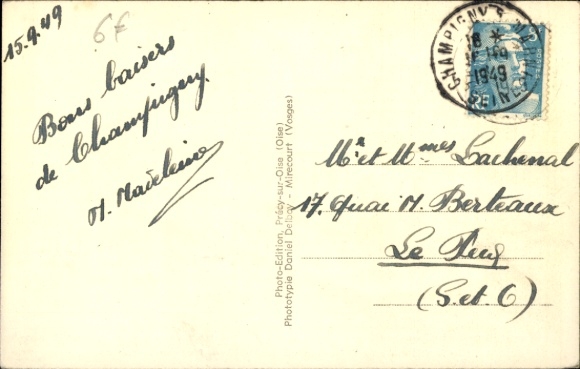 15.9.49
6€
Bons baisers
de Champigny.
M. Madeleine
Photo-Edition, Précy-sur-Oise (Oise)
Phototypie Daniel Delboy - Mirecourt (Vosges)
CHAMPIGNY S. MARNE
18 *
1949
POSTES
Mr et Mmes Lachenal
17, Quai M. Berteaux
Le Pecq
(S. et O)